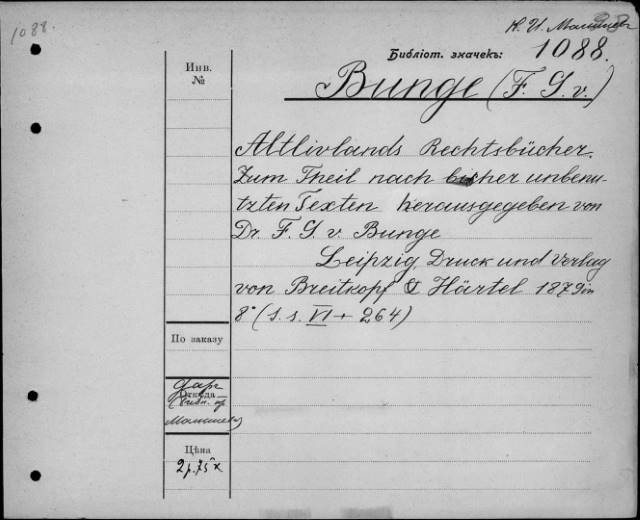 1088.
К. И. Малышев
Библіот. значекъ:
1088.
Инв.
№
Bunge (F. G. v.)
Altlivlands Rechtsbücher.
Zum Theil nach bisher unbenu-
tzten Texten herausgegeben von
Dr. F. G. v. Bunge
Leipzig, Druck und Verlag
von Breitkopf & Härtel 1879 in
8° (s. s. VI + 264)
По заказу
Даръ
Откуда
Малышева)
Цѣна
2 р. 75 к